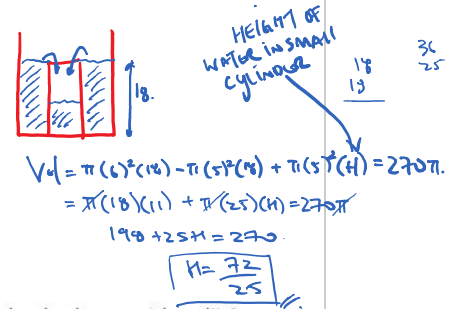 HEIGHT OF
WATER IN SMALL
CYLINDER
18
18
36
25
18.
Vol = π(6)²(18) - π(5)²(18) + π(5)²(H) = 270π.
= π(18)(11) + π(25)(H) = 270π
198 + 25H = 270.
H = 72/25